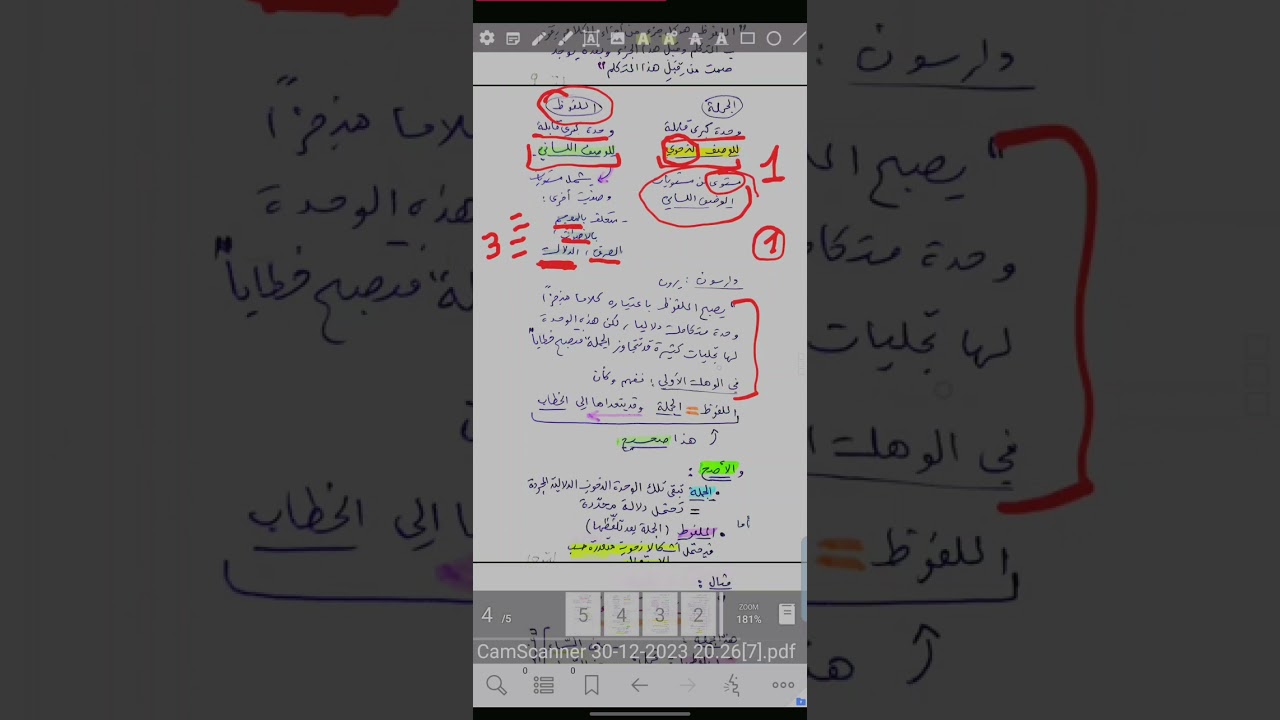 صمت من قبل هذا المتكلم"
الجملة
وحدة كبرى قابلة
للوصف النحوي
مستوى من مستويات
الوصف اللساني
1
1
الملفوظ
وحدة كبرى قابلة
للوصف اللساني.
يشمل مستويات
وصفية أخرى:
- متعلقة بالمعجم
بالأصوات،
الصرف، الدلالة
3
دارسون: يرون
"يصبح الملفوظ باعتباره كلاما منجزا
وحدة متكاملة دلاليا، لكن هذه الوحدة
لها تجليات كثيرة قد تتجاوز الجملة، فتصبح خطابا"
في الوهلة الأولى: نفهم وكأن
الملفوظ = الجملة وقد يتعداها إلى الخطاب
هذا صحيح
والأصح:
• الجملة تبقى تلك الوحدة النحوية الدلالية المجردة
= تحتمل دلالة محددة
أما
• الملفوظ (الجملة بعد تلفظها)
فيحتمل أشكالا نحوية متعددة حسب
مثال:
4 /5
5
4
3
2
ZOOM
181%
CamScanner 30-12-2023 20.26[7].pdf
0
0